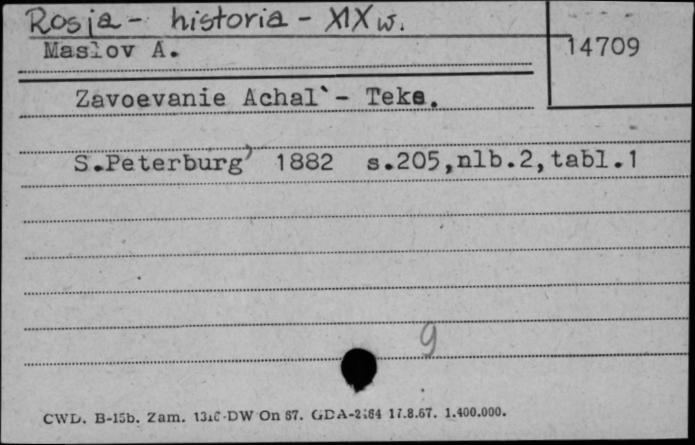 Rosja - historia - XIX w.
Maslov A.
14709
Zavoevanie Achal` - Teke.
S.Peterburg’ 1882 s.205,nlb.2,tabl.1
9
CWD. B-15b. Zam. DW On 67. GDA-2/64 17.8.67. 1.400.000.